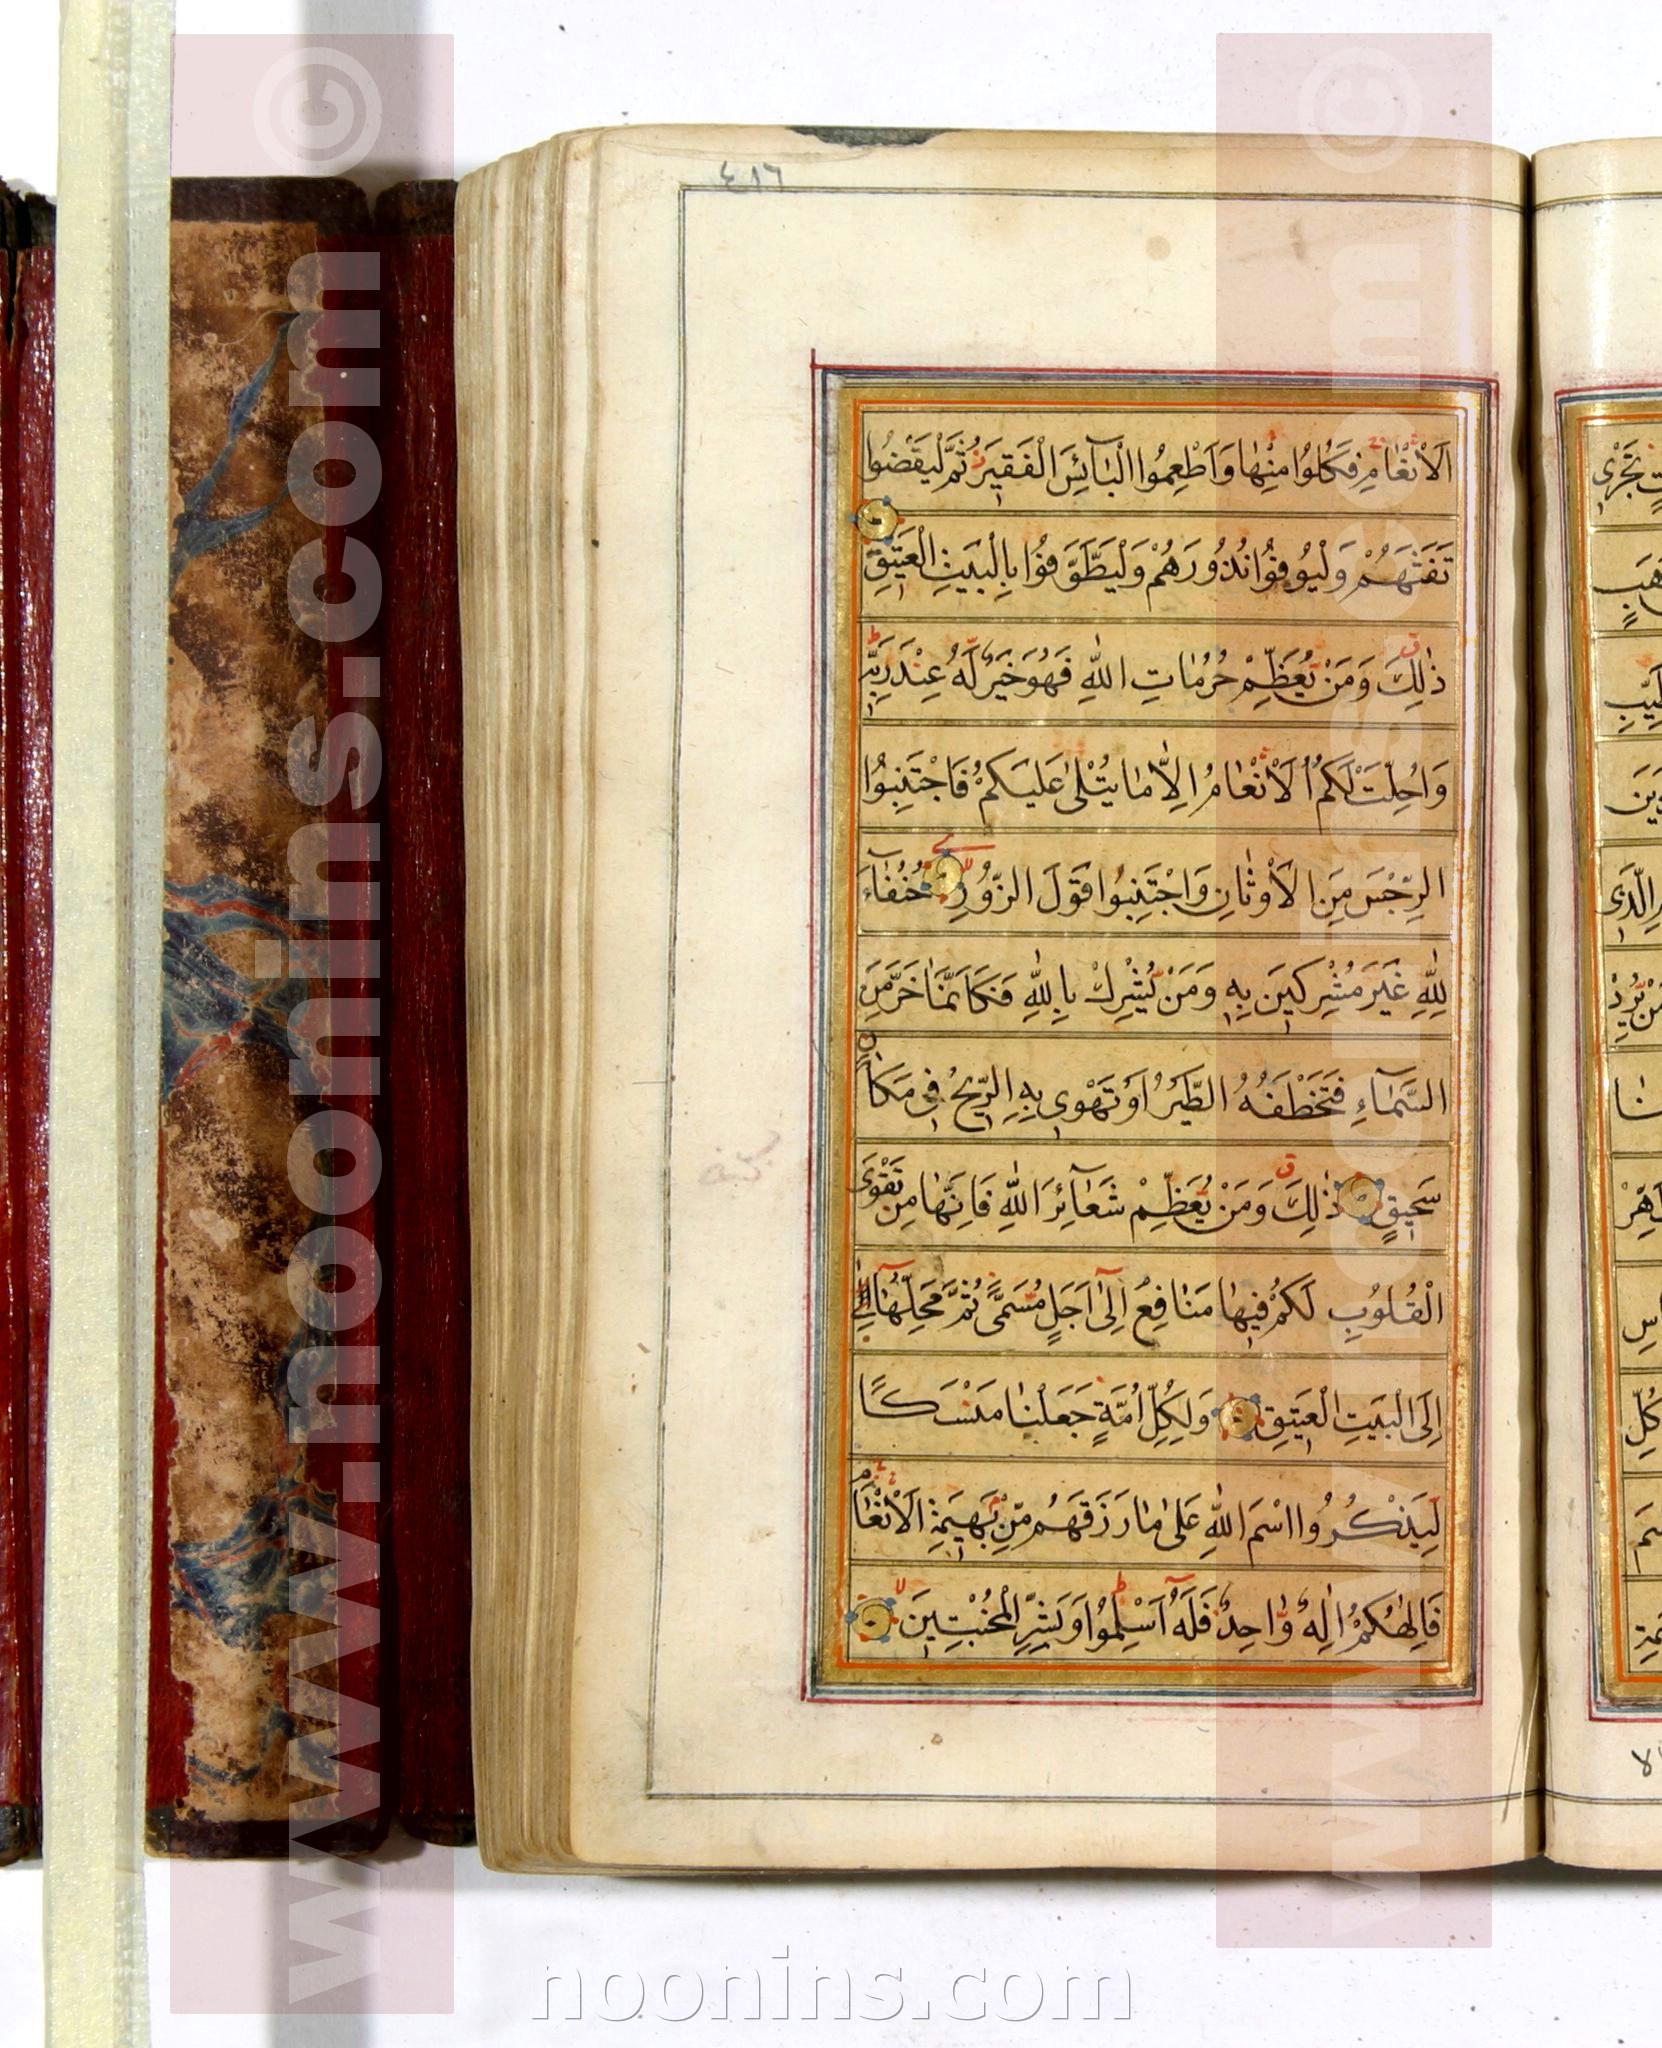 ٤١٦
اَلْاَنْعٰامِ فَكُلُوا مِنْهٰا وَاَطْعِمُوا الْبٰآئِسَ الْفَقيرَ ثُمَّ لْيَقْضُوا
تَفَثَهُمْ وَلْيُوفُوا نُذُورَهُمْ وَلْيَطَّوَّفُوا بِالْبَيْتِ الْعَتيقِ
ذٰلِكَ وَمَنْ يُعَظِّمْ حُرُمٰاتِ اللّٰهِ فَهُوَ خَيْرٌ لَهُ عِنْدَ رَبِّه
وَاُحِلَّتْ لَكُمُ الْاَنْعٰامُ اِلّٰا مٰا يُتْلٰى عَلَيْكُمْ فَاجْتَنِبُوا
الرِّجْسَ مِنَ الْاَوْثٰانِ وَاجْتَنِبُوا قَوْلَ الزُّورِ حُنَفٰآءَ
لِلّٰهِ غَيْرَ مُشْرِكينَ بِه وَمَنْ يُشْرِكْ بِاللّٰهِ فَكَاَنَّمٰا خَرَّ مِنَ
السَّمٰآءِ فَتَخْطَفُهُ الطَّيْرُ اَوْ تَهْوي بِهِ الرّيحُ في مَكٰانٍ
سَحيقٍ ذٰلِكَ وَمَنْ يُعَظِّمْ شَعٰآئِرَ اللّٰهِ فَاِنَّهٰا مِنْ تَقْوَى
الْقُلُوبِ لَكُمْ فيهٰا مَنٰافِعُ اِلٰٓى اَجَلٍ مُسَمًّى ثُمَّ مَحِلُّهٰآ
اِلَى الْبَيْتِ الْعَتيقِ وَلِكُلِّ اُمَّةٍ جَعَلْنٰا مَنْسَكًا
لِيَذْكُرُوا اسْمَ اللّٰهِ عَلٰى مٰا رَزَقَهُمْ مِنْ بَهيمَةِ الْاَنْعٰامِ
فَاِلٰهُكُمْ اِلٰهٌ وٰاحِدٌ فَلَهُٓ اَسْلِمُوا وَبَشِّرِ الْمُخْبِتينَ
www.noonins.com ©
www.noonins.com ©
noonins.com